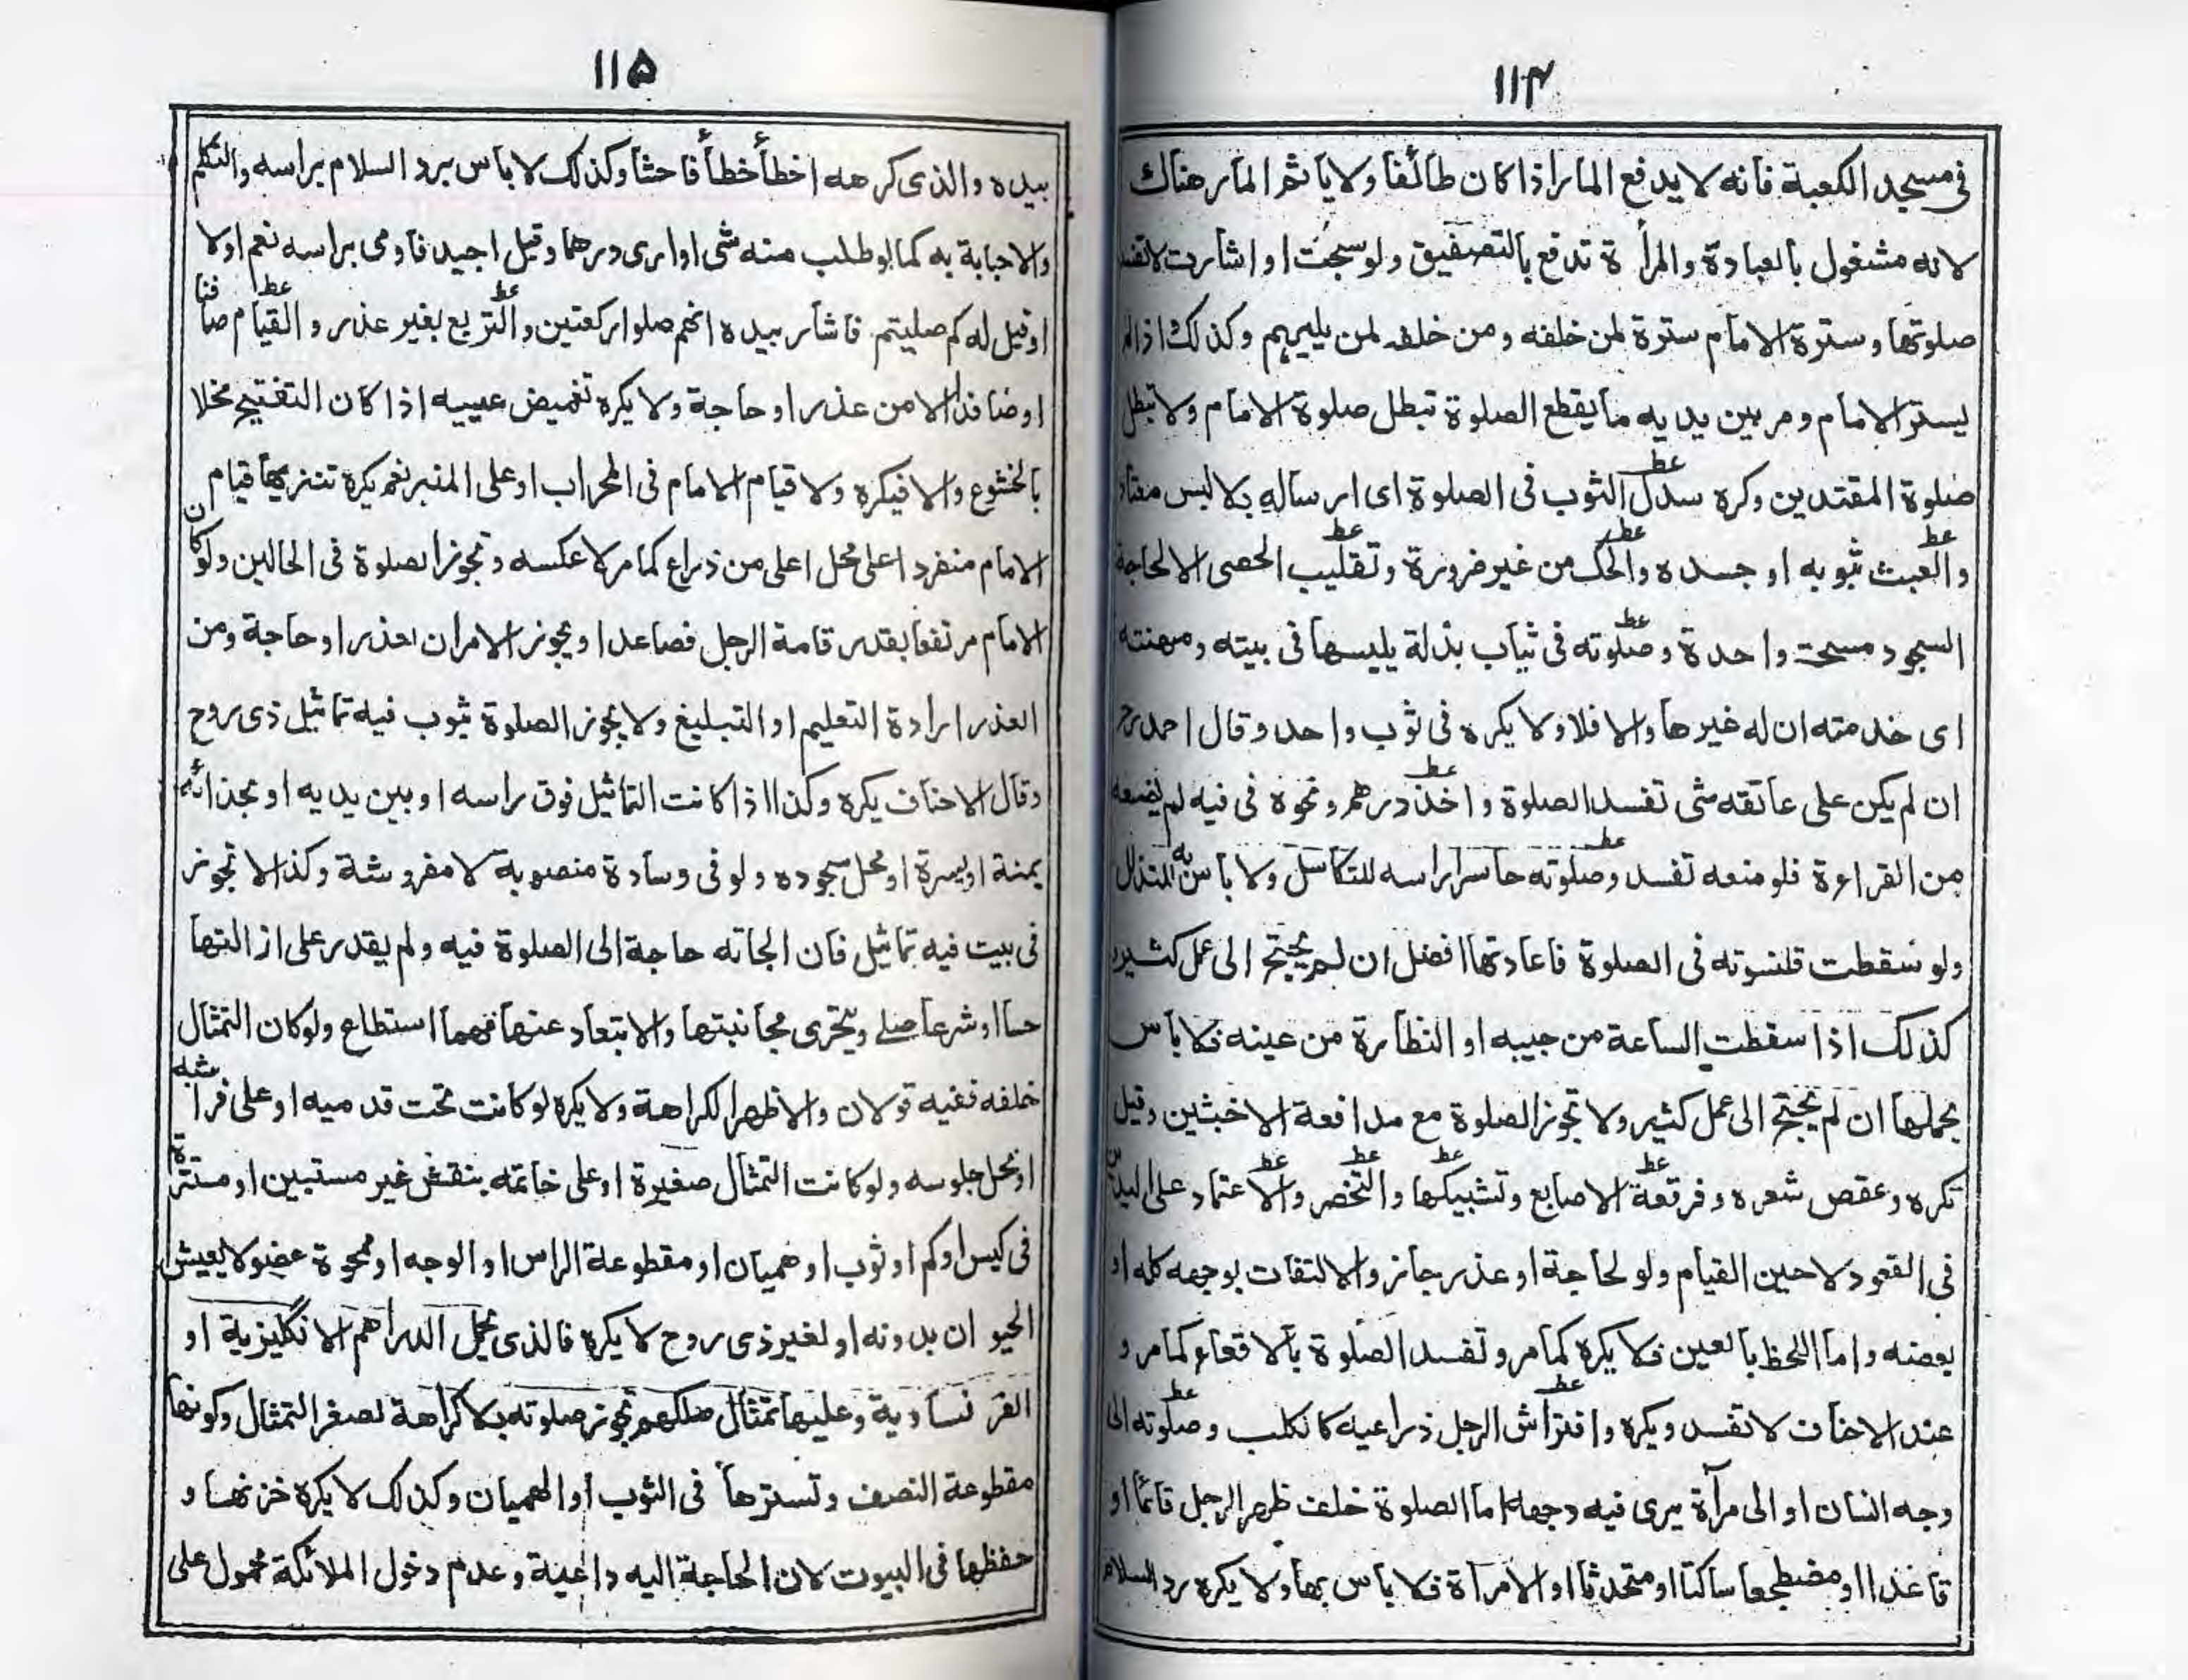 ۱۱۴
فى مسجد الكعبة فانه لا يدفع المار اذا كان طائفا ولا ياثم المار هناك
لانه مشغول بالعبادة والمرأة تدفع بالتصفيق ولو سبحت او اشارت لا تفسد
صلوتها وسترة الامام سترة لمن خلفه ومن خلفه لمن يليهم وكذلك اذا لم
يستتر الامام ومر بين يديه ما يقطع الصلوة تبطل صلوة الامام ولا تبطل
صلوة المقتدين وكره سدل الثوب فى الصلوة اى ارساله بلا لبس معتاد
والعبث بثوبه او جسده والحك من غير ضرورة وتقليب الحصى الا لحاجة
السجود مسحة واحدة وصلوته فى ثياب بذلة يلبسها فى بيته ومهنته
اى خدمته ان له غيرها والا فلا ولا يكره فى ثوب واحد وقال احمد رح
ان لم يكن على عاتقه شى تفسد الصلوة واخذ درهم ونحوه فى فيه لم يمنعه
من القراءة فلو منعه تفسد وصلوته حاسرا راسه للتكاسل ولا باس به للتذلل
ولو سقطت قلنسوته فى الصلوة فاعادتها افضل ان لم يحتج الى عمل كثير
كذلك اذا سقطت الساعة من جيبه او النظارة من عينه فلا باس
بحملها ان لم يحتج الى عمل كثير ولا تجوز الصلوة مع مدافعة الاخبثين وقيل
تكره وعقص شعره وفرقعة الاصابع وتشبيكها والتخصر والاعتماد على اليدين
فى القعود لا حين القيام ولو لحاجة او عذر جائز والالتفات بوجهه كله او
بعضه واما اللحظ بالعين فلا يكره كما مر وتفسد الصلوة بالاقعاء كما مر و
عند الاحناف لا تفسد ويكره وافتراش الرجل ذراعيه كالكلب وصلوته الى
وجه انسان او الى مرآة يرى فيه وجهه اما الصلوة خلف ظهر الرجل قائما او
قاعدا او مضطجعا ساكتا او متحدثا او الامرأة فلا باس بها ولا يكره رد السلام
۱۱۵
بيده والذى كرهه اخطأ خطأ فاحشا وكذلك لا باس برد السلام براسه والتكلم
والاجابة به كما لو طلب منه شى او ارى درهما وقيل اجيد فاومى براسه نعم او لا
او قيل له كم صليتم فاشار بيده انهم صلوا ركعتين والتربع بغير عذر والقيام صافنا
او صافدا الا من عذر او حاجة ولا يكره تغميض عينيه اذا كان التفتيح مخلا
بالخشوع والا فيكره ولا قيام الامام فى المحراب او على المنبر نعم يكره تنزيها قيام
الامام منفردا على محل اعلى من ذراع كما مر لا عكسه وتجوز الصلوة فى الحالين ولو كان
الامام مرتفعا بقدر قامة الرجل فصاعدا ويجوز الامران لعذر او حاجة ومن
العذر ارادة التعليم او التبليغ ولا يجوز الصلوة بثوب فيه تماثيل ذى روح
وقال الاحناف يكره وكذا اذا كانت التماثيل فوق راسه او بين يديه او بحذائه
يمنة او يسرة او محل سجوده ولو فى وسادة منصوبة لا مفروشة وكذا لا تجوز
فى بيت فيه تماثيل فان الجاته حاجة الى الصلوة فيه ولم يقدر على ازالتها
حسا او شرعا صلى ويتحرى مجانبتها والابتعاد عنها مهما استطاع ولو كان التمثال
خلفه ففيه قولان والاظهر الكراهة ولا يكره لو كانت تحت قدميه او على فراشه
او محل جلوسه ولو كانت التمثال صغيرة او على خاتمه بنقش غير مستبين او مستترة
فى كيس او كم او ثوب او هميان او مقطوعة الراس او الوجه او ممحوة عضو لا يعيش
الحيوان بدونه او لغير ذى روح لا يكره فالذى يحمل الدراهم الانكليزية او
الفرنساوية وعليها تمثال ملكهم تجوز صلوته بلا كراهة لصغر التمثال وكونها
مقطوعة النصف وتسترها فى الثوب او الهميان وكذلك لا يكره خزنها و
حفظها فى البيوت لان الحاجة اليه داعية وعدم دخول الملائكة محمول على